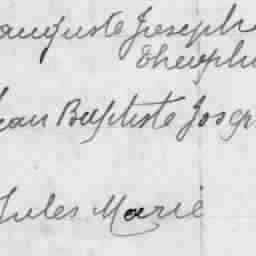 auguste Joseph
Theophi
ean Baptiste Josep
Jules Marie